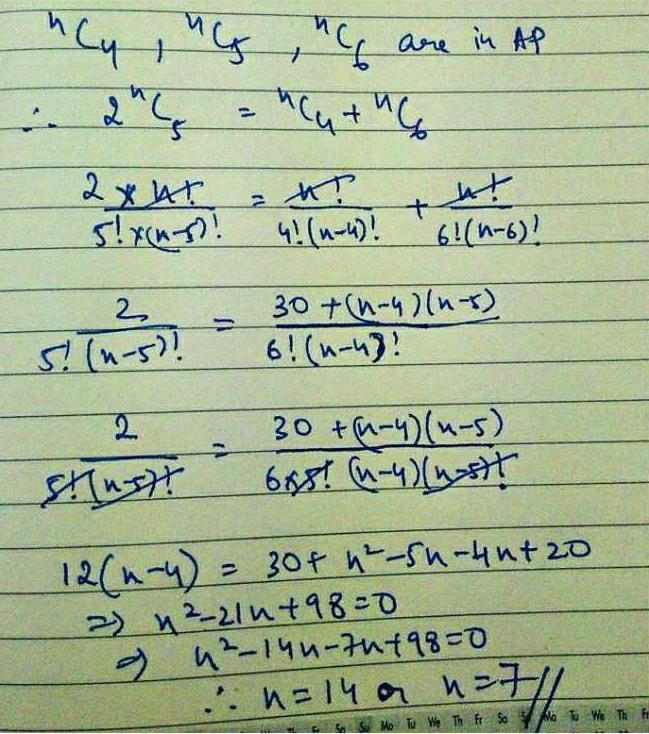 ⁿC₄ , ⁿC₅ , ⁿC₆ are in AP
∴ 2 ⁿC₅ = ⁿC₄ + ⁿC₆
2 × n! / 5! × (n-5)! = n! / 4! (n-4)! + n! / 6! (n-6)!
2 / 5! (n-5)! = 30 + (n-4)(n-5) / 6! (n-4)!
2 / 5! (n-5)! = 30 + (n-4)(n-5) / 6×5! (n-4)(n-5)!
12(n-4) = 30 + n² - 5n - 4n + 20
⇒ n² - 21n + 98 = 0
⇒ n² - 14n - 7n + 98 = 0
∴ n = 14 or n = 7 //
Fr Sa Su Mo Tu We Th Fr Sa S Mo Tu We Th Fr